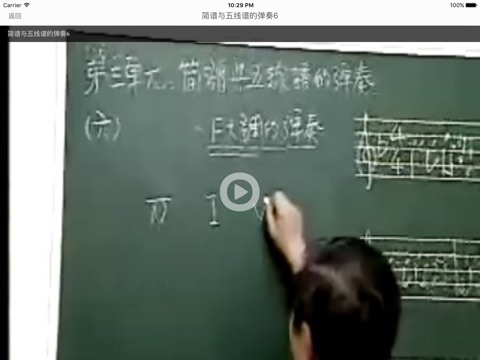 Carrier 10:29 PM 100%
返回 简谱与五线谱的弹奏6
简谱与五线谱的弹奏6
第三單元、简譜與五線譜的弹奏
(六) 、F大調的弹奏
4
4
IV I V